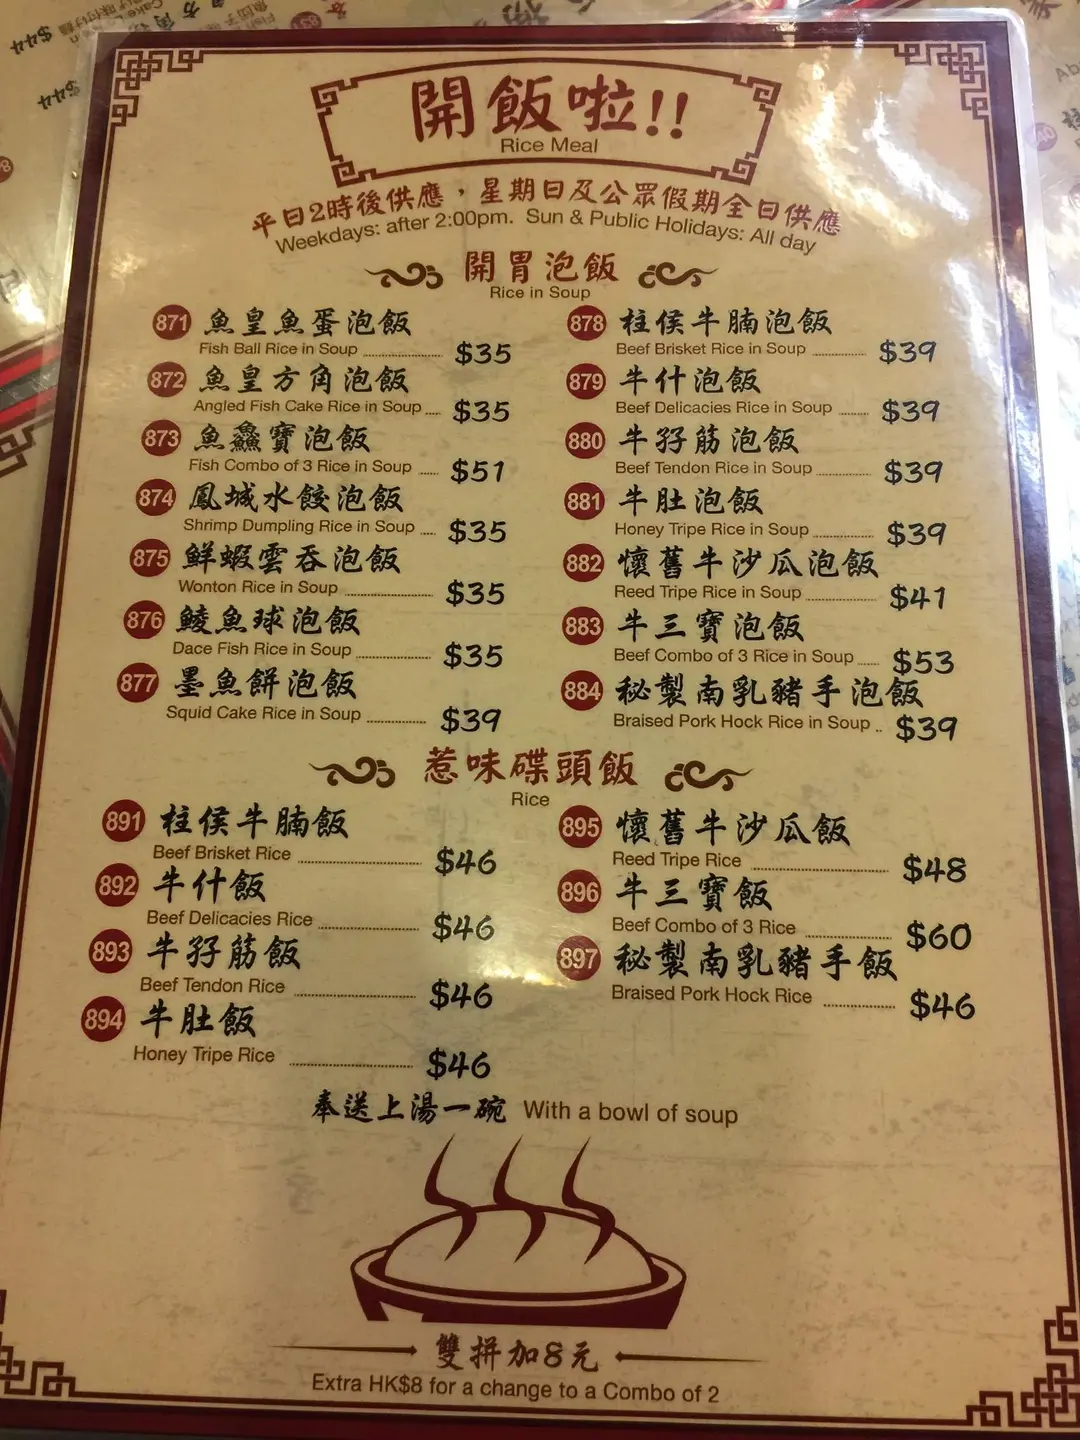 開飯啦!!
Rice Meal
平日2時後供應，星期日及公眾假期全日供應
Weekdays: after 2:00pm. Sun & Public Holidays: All day
開胃泡飯
Rice in Soup
871 魚皇魚蛋泡飯
Fish Ball Rice in Soup $35
872 魚皇方角泡飯
Angled Fish Cake Rice in Soup $35
873 魚鱻寶泡飯
Fish Combo of 3 Rice in Soup $51
874 鳳城水餃泡飯
Shrimp Dumpling Rice in Soup $35
875 鮮蝦雲吞泡飯
Wonton Rice in Soup $35
876 鯪魚球泡飯
Dace Fish Rice in Soup $35
877 墨魚餅泡飯
Squid Cake Rice in Soup $39
878 柱侯牛腩泡飯
Beef Brisket Rice in Soup $39
879 牛什泡飯
Beef Delicacies Rice in Soup $39
880 牛孖筋泡飯
Beef Tendon Rice in Soup $39
881 牛肚泡飯
Honey Tripe Rice in Soup $39
882 懷舊牛沙瓜泡飯
Reed Tripe Rice in Soup $41
883 牛三寶泡飯
Beef Combo of 3 Rice in Soup $53
884 秘製南乳豬手泡飯
Braised Pork Hock Rice in Soup $39
惹味碟頭飯
Rice
891 柱侯牛腩飯
Beef Brisket Rice $46
892 牛什飯
Beef Delicacies Rice $46
893 牛孖筋飯
Beef Tendon Rice $46
894 牛肚飯
Honey Tripe Rice $46
895 懷舊牛沙瓜飯
Reed Tripe Rice $48
896 牛三寶飯
Beef Combo of 3 Rice $60
897 秘製南乳豬手飯
Braised Pork Hock Rice $46
奉送上湯一碗 With a bowl of soup
雙拼加8元
Extra HK$8 for a change to a Combo of 2